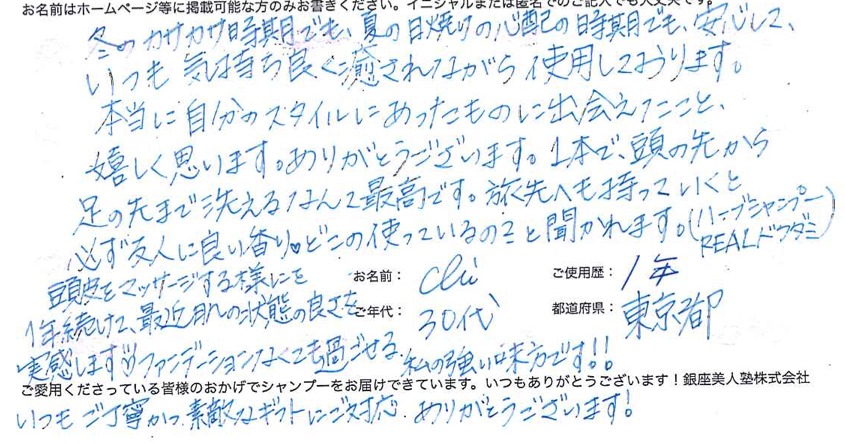 お名前はホームページ等に掲載可能な方のみお書きください。イニシャルまたは匿名でのご記入でも大丈夫です。
冬のカサカサ時期でも、夏の日焼けの心配の時期でも、安心して、
いつも気持ち良く癒されながら使用しております。
本当に自分のスタイルにあったものに出会えたこと、
嬉しく思います。ありがとうございます。1本で、頭の先から
足の先まで洗えるなんて最高です。旅先へも持っていくと
必ず友人に良い香り♥どこの使っているの?と聞かれます。(ハーブシャンプー
REALドクダミ)
頭皮をマッサージする様にを
1年続けて、最近肌の状態の良さを
実感します!!ファンデーションなくても過ごせる。私の強い味方です!!
お名前: Chi
ご使用歴: 1年
ご年代: 30代
都道府県: 東京都
ご愛用くださっている皆様のおかげでシャンプーをお届けできています。いつもありがとうございます!銀座美人塾株式会社
いつもご丁寧かつ素敵なギフトにご対応 ありがとうございます!